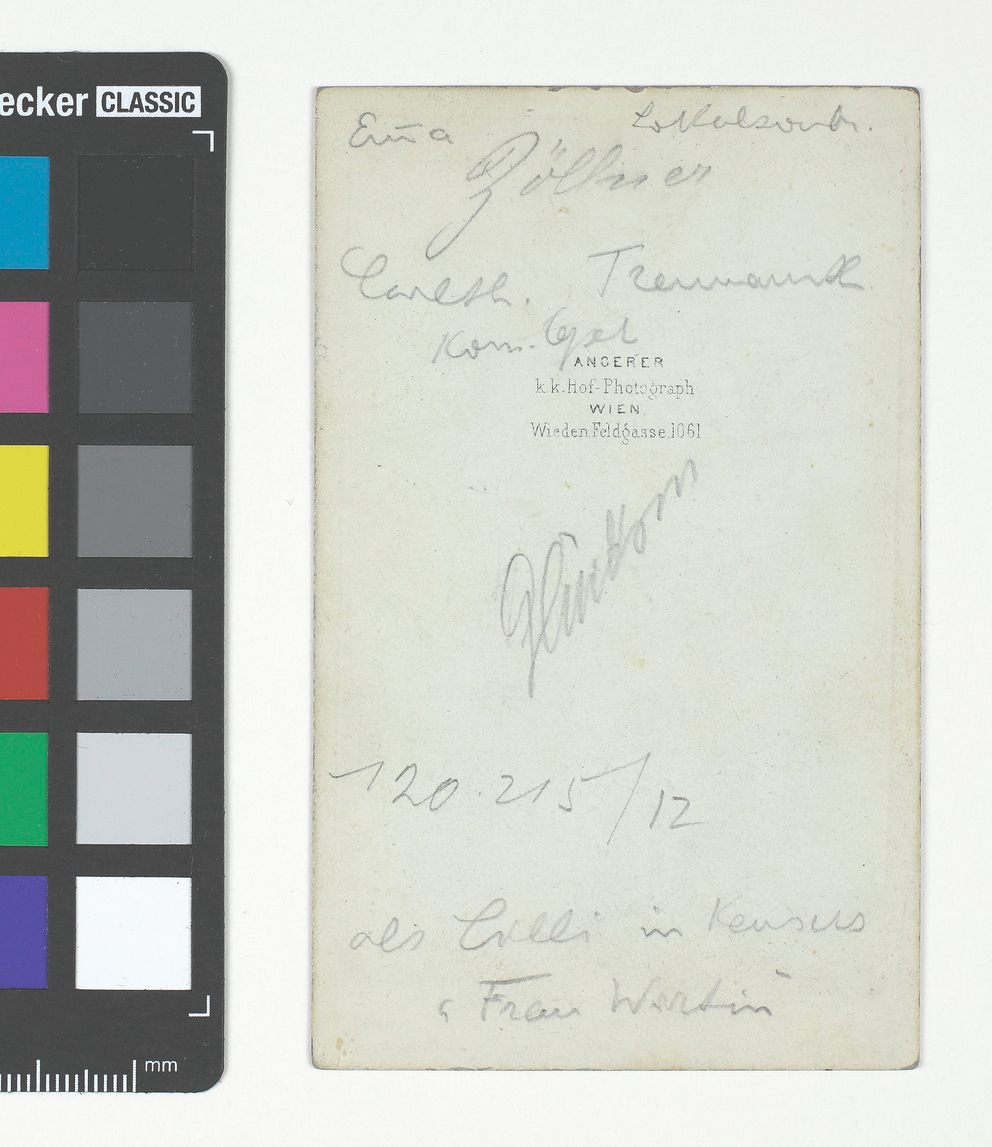 ecker CLASSIC
Em̄a Lokalsoubr.
Zöllner
Carlsth. Treumannth
Kom. Oper
ANGERER
k.k. Hof-Photograph
WIEN,
Wieden, Feldgasse, 1061
120.215/12
als Lilli in Kaisers
"Frau Wirtin"
mm